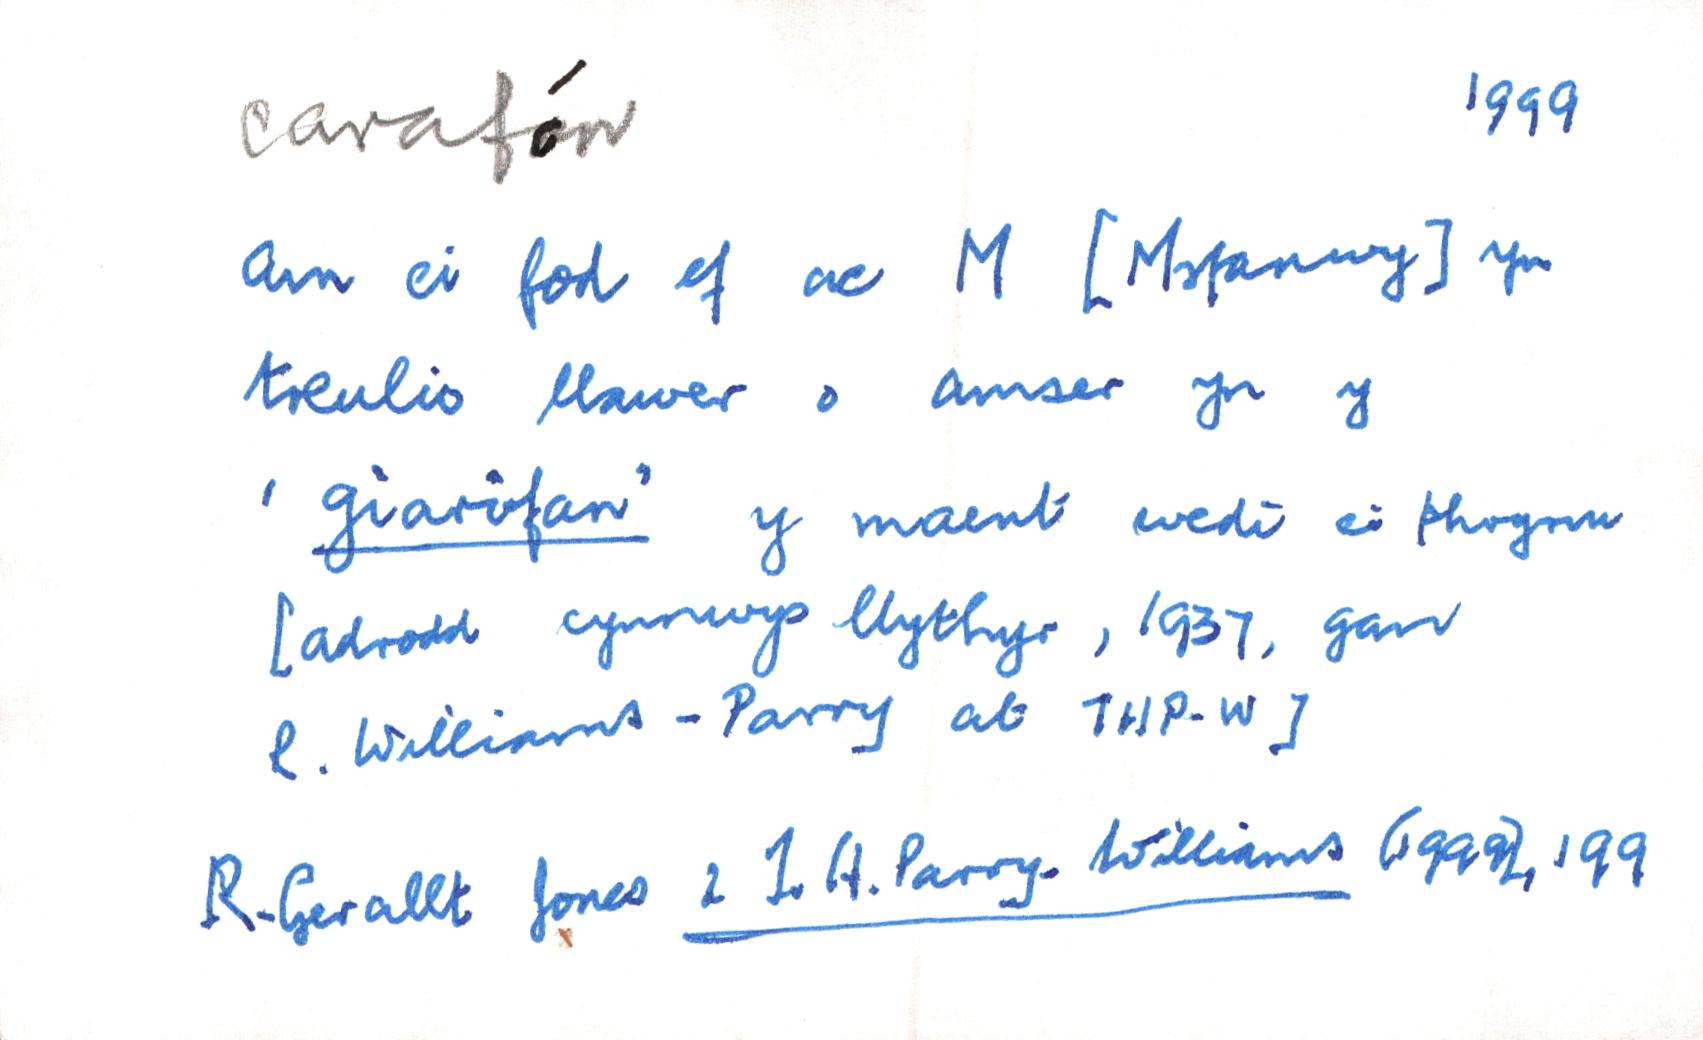 carafán 1999
am ei fod ef ac M [Myfanwy] yn
treulio llawer o amser yn y
'giarîfan' y maent wedi ei phrynu
[adrodd cynnwys llythyr, 1937, gan
R. Williams-Parry at THP-W]
R. Gerallt Jones : T. H. Parry-Williams (1999), 199